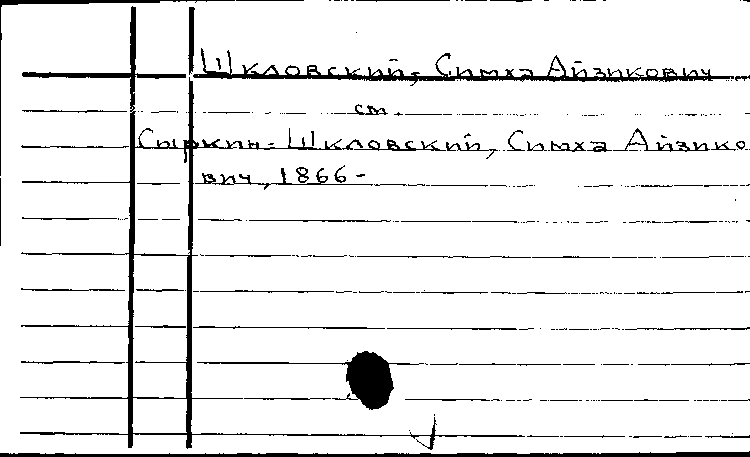 Шкловский, Симха Айзикович
см.
Сыркин-Шкловский, Симха Айзико
вич, 1866-